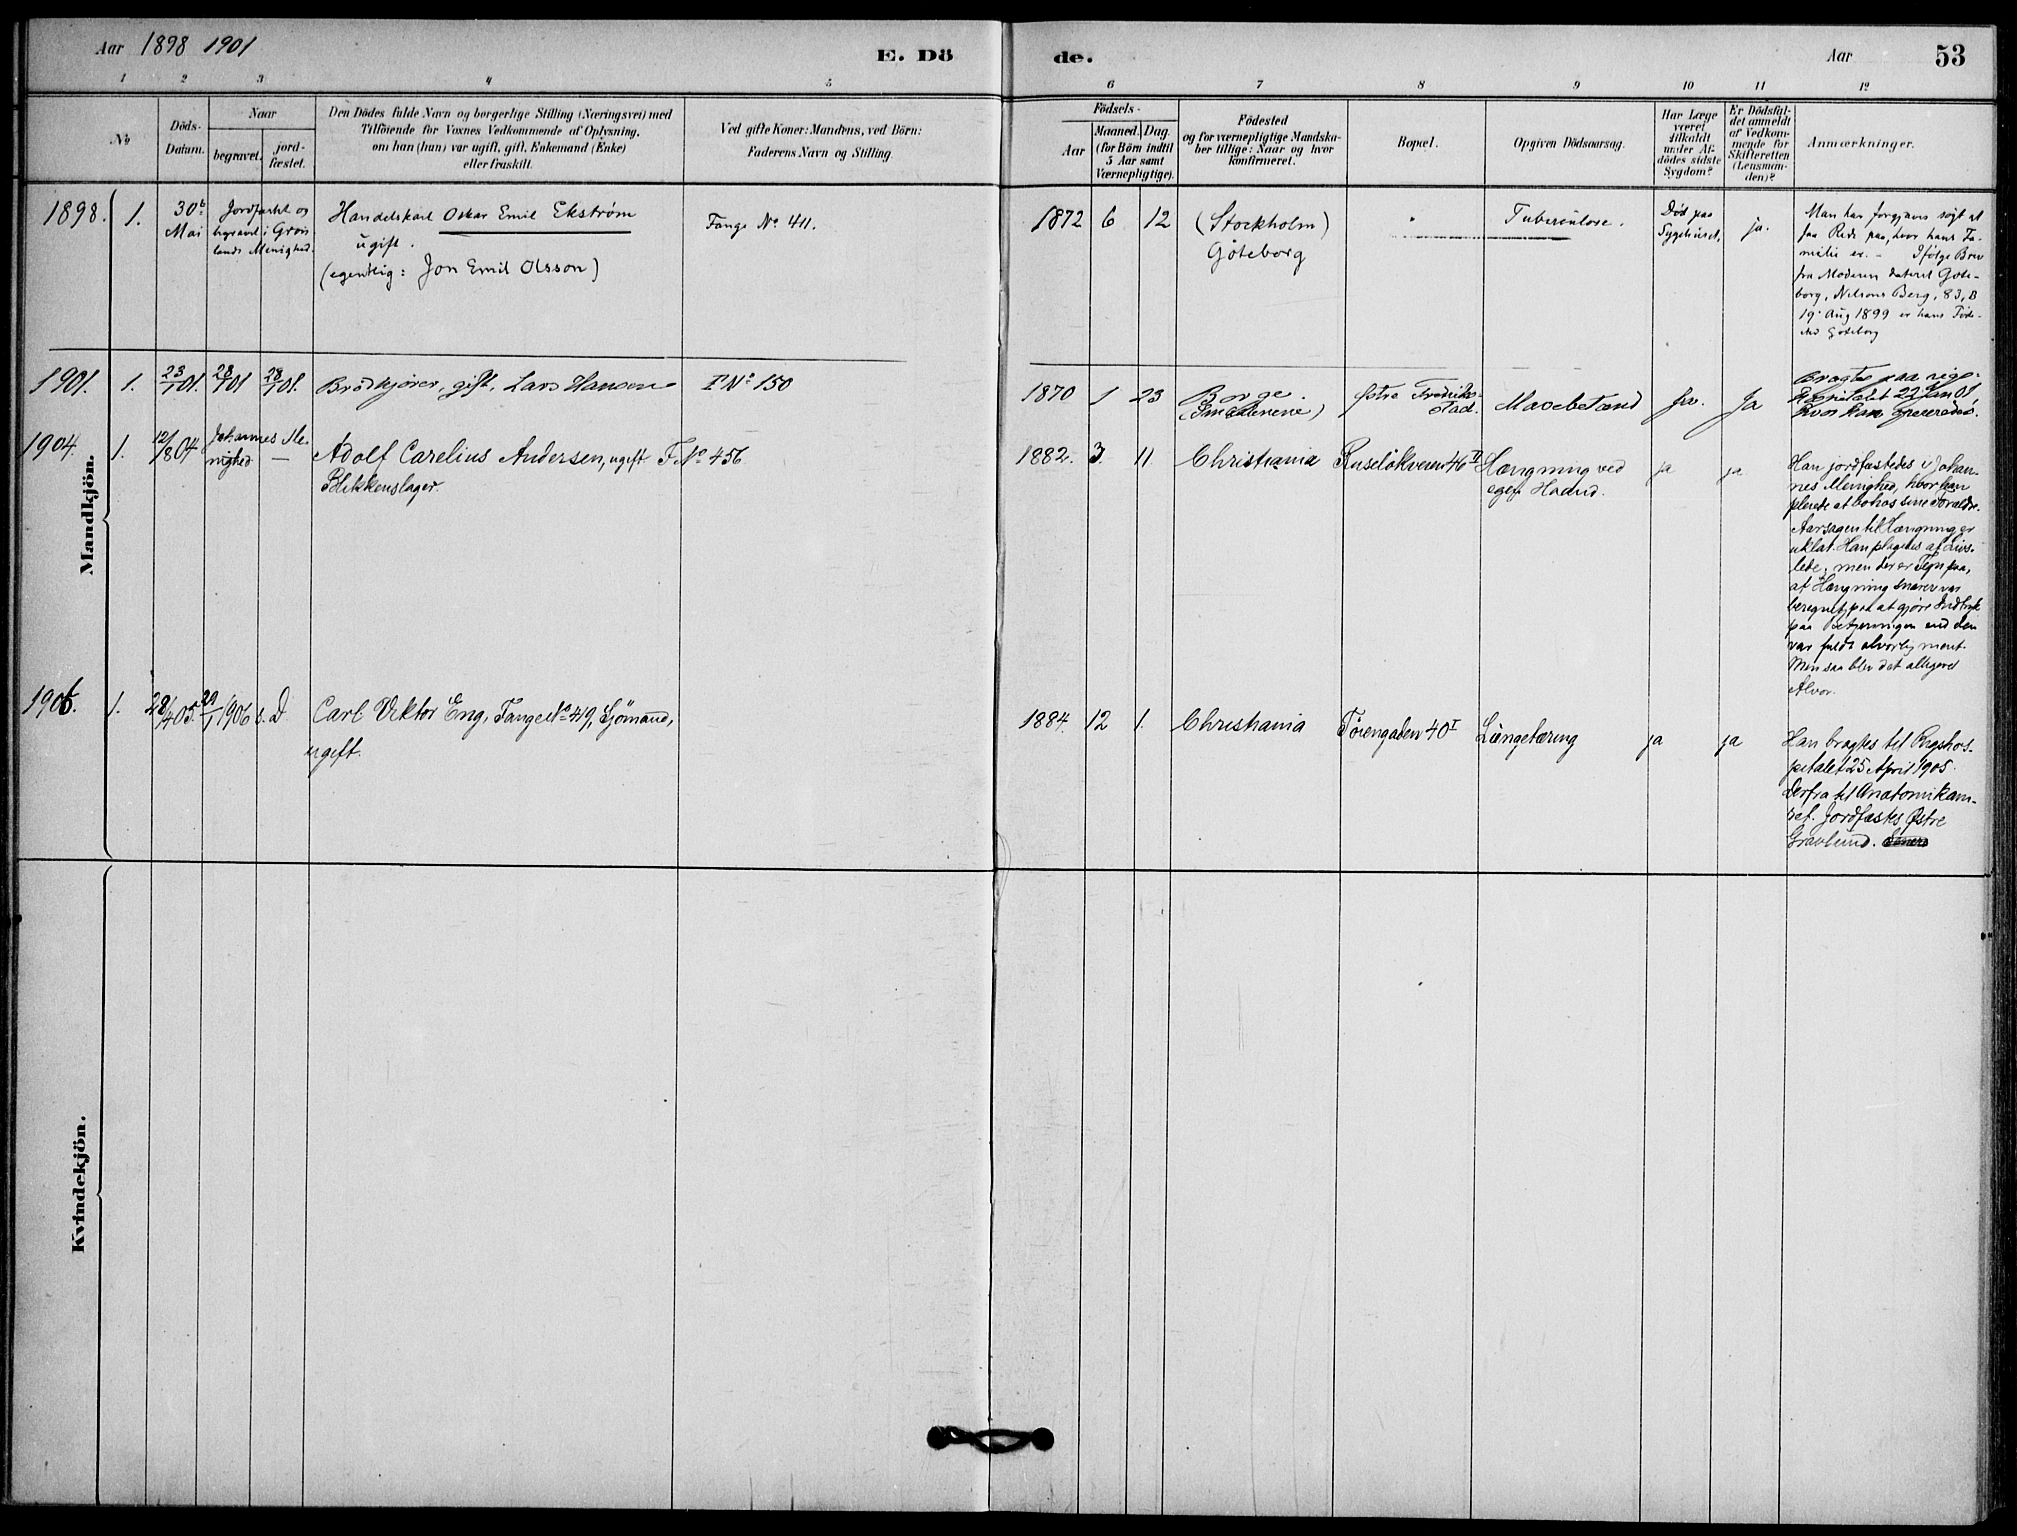 Aar 1898 1901
E. Dö
de.
Aar
53
1 2 3 4 5 6 7 8 9 10 11 12
No
Döds-
Datum.
Naar
begravet.
jord-
fæstet.
Den Dödes fulde Navn og borgerlige Stilling (Næringsvei) med
Tilföiende for Voxnes Vedkommende af Oplysning,
om han (hun) var ugift, gift, Enkemand (Enke)
eller fraskilt.
Ved gifte Koner: Mandens, ved Börn:
Faderens Navn og Stilling.
Födsels-
Aar
Maaned. Dag.
(for Börn indtil
5 Aar samt
Værnepligtige).
Födested
og for værnepligtige Mandska-
ber tillige: Naar og hvor
konfirmeret.
Bopæl.
Opgiven Dödsaarsag.
Har Læge
været
tilkaldt
under Af-
dödes sidste
Sygdom?
Er Dödsfal-
det anmeldt
af Vedkom-
mende for
Skifteretten
(Lensman-
den)?
Anmærkninger.
Mandkjön.
1898. 1.
30te
Mai
Jordfæstet og
begravet i Grøn
lands Menighed.
Handelskarl Oskar Emil Ekström
ugift.
(egentlig: Jon Emil Olsson)
Fange No 411.
1872 6 12
(Stockholm)
Göteborg
"
Tuberculose.
Död paa
Sygehuset.
ja.
Man har forgjæves søgt at
faa Rede paa, hvor hans Fa-
milie er. - Ifølge Brev
fra Moderen dateret Göte-
borg, Nilsons Berg, 83, B
19. Aug 1899 er hans Føde-
sted Göteborg
1901. 1. 23/1 01. 28/1 01 28/1 01.
Brödkjörer, gift, Lars Hansen
F No 150
1870 1 23
Borge.
(Smaalenene)
Østre Fredriks-
stad.
Mavebetænd
Ja
22 Jan 01
hvor han opereredes.
1904. 1. 12/8 04
Johannes Me-
nighed —
Adolf Carelius Andersen, ugift F. No 456
Blikkenslager.
1882. 3. 11.
Christiania
Ruseløkveien 46 II
Hængning ved
egen Haand.
ja ja
Han jordfæstedes i Johan-
nes Menighed, hvor han
pleiede at bo hos sine Forældre.
Aarsagen til Hængning er
uklar. Han plagedes af Livs-
lede, men der er Tegn paa,
at Hængning snarere var
beregnet paa at gjøre Indtryk
paa Betjeningen end den
var fuldt alvorlig ment.
Men saa blev det alligevel
Alvor.
1906. 1. 28/4 05. 29/1 1906 s. D.
Carl Viktor Eng, Fange No 419, Sjömand,
ugift.
1884. 12 1.
Christiania
Töiengaden 40 I
Lungetæring
ja ja
Han bragtes til Rigshos-
pitalet 25 April 1905.
Derfra til Anatomikam-
ret. Jordfæstes Østre
Gravlund.
Kvindekjön.